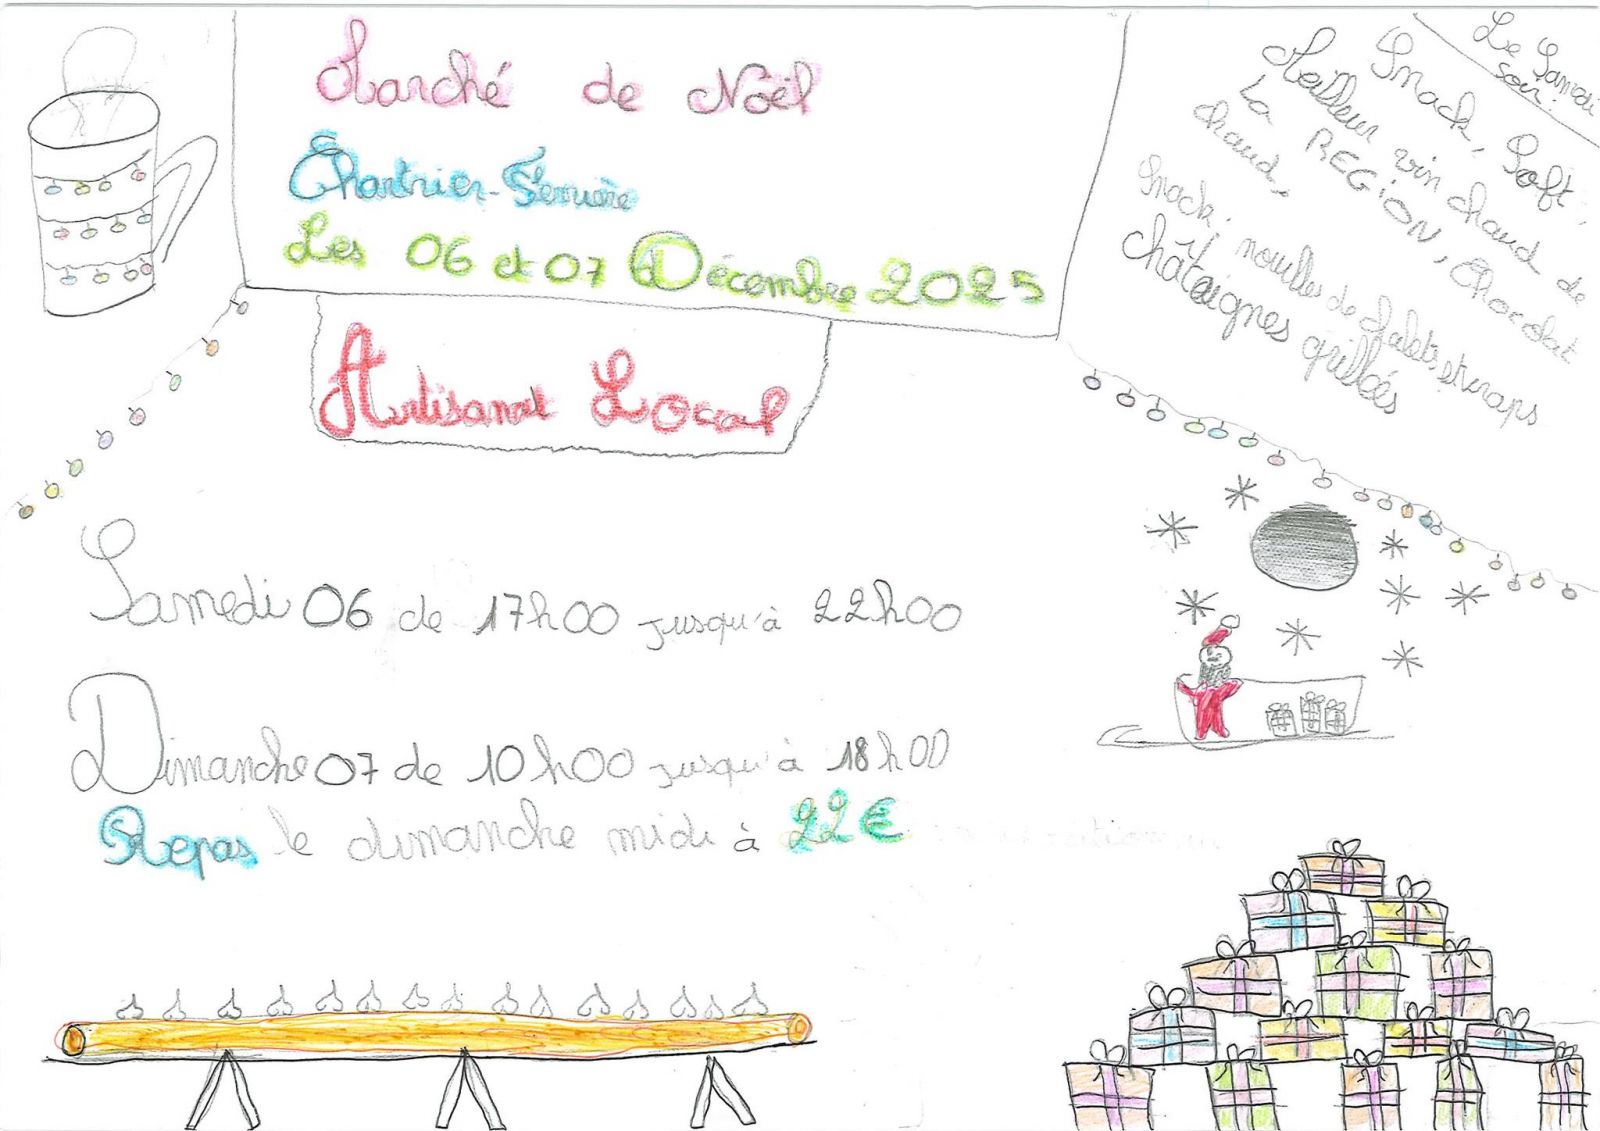 Marché de Noël
Chartrier-Ferrière
Les 06 et 07 Décembre 2025
Artisanat Local
Le Samedi
soir :
Snack, Soft,
Meilleur vin chaud de
La REGiON, Chocolat
chaud,
Snack : nouilles de Mulets et wraps
châtaignes grillées
Samedi 06 de 17h00 jusqu'à 22h00
Dimanche 07 de 10h00 jusqu'à 18h00
Repas le dimanche midi à 22€